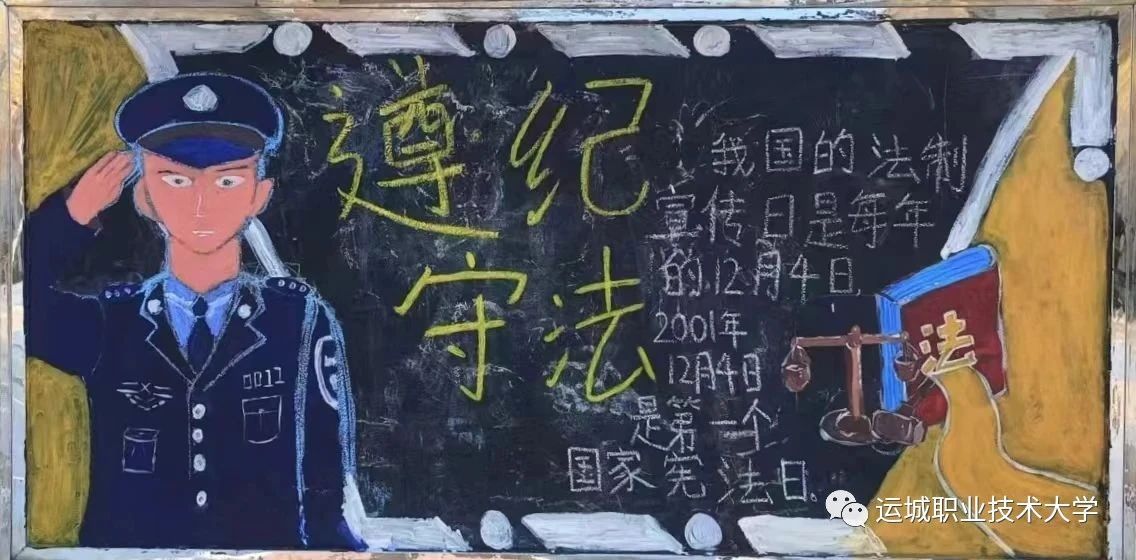 遵纪
守法
我国的法制
宣传日是每年
的12月4日
2001年
12月4日
是第一个
国家宪法日.
法
运城职业技术大学